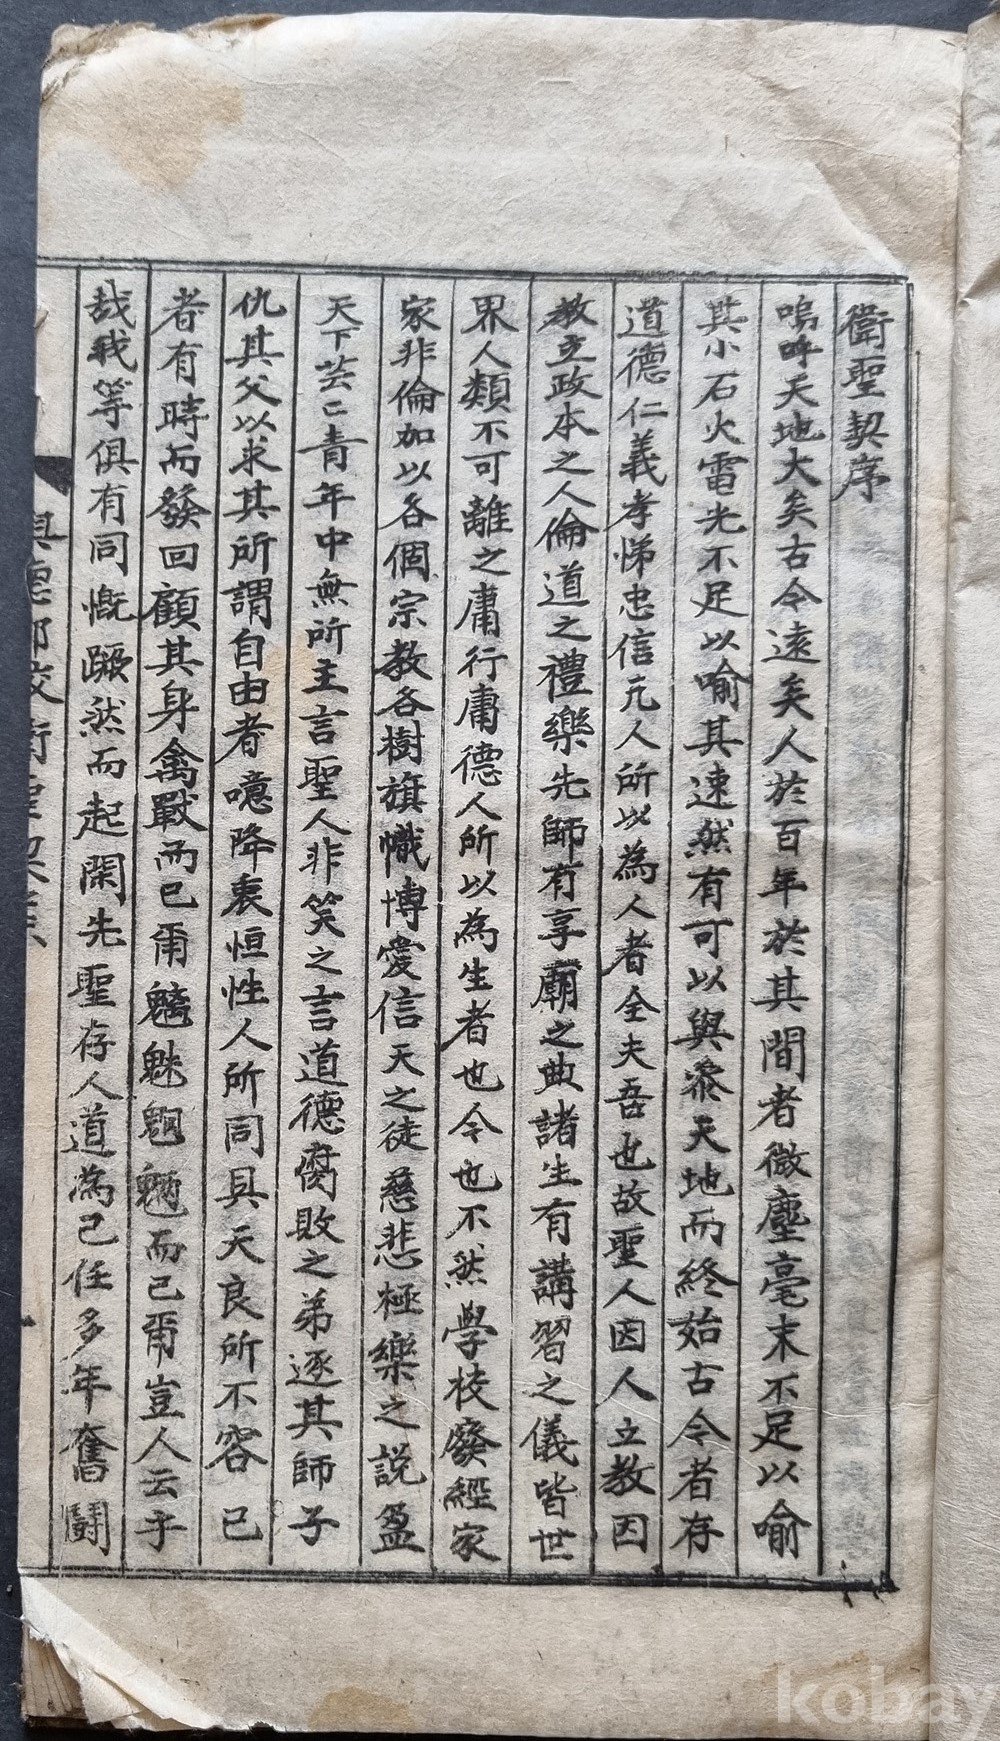 衛聖契序
嗚呼天地大矣古今遠矣人於百年於其間者微塵毫末不足以喻
其小石火電光不足以喻其速然有可以與參天地而終始古今者存
道德仁義孝悌忠信凡人所以為人者全夫吾也故聖人因人立教因
教立政本之人倫道之禮樂先師有享廟之典諸生有講習之儀皆世
界人類不可離之庸行庸德人所以為生者也今也不然學校廢經家
家非倫加以各個宗教各樹旗幟博愛信天之徒慈悲極樂之說盈
天下芸〻青年中無所主言聖人非笑之言道德腐敗之弟逐其師子
仇其父以求其所謂自由者噫降衷恒性人所同具天良所不容已
者有時而發回顧其身禽獸而已爾魑魅魍魎而已爾豈人云乎
哉我等俱有同慨蹶然而起閑先聖存人道為己任多年奮鬪
kobay